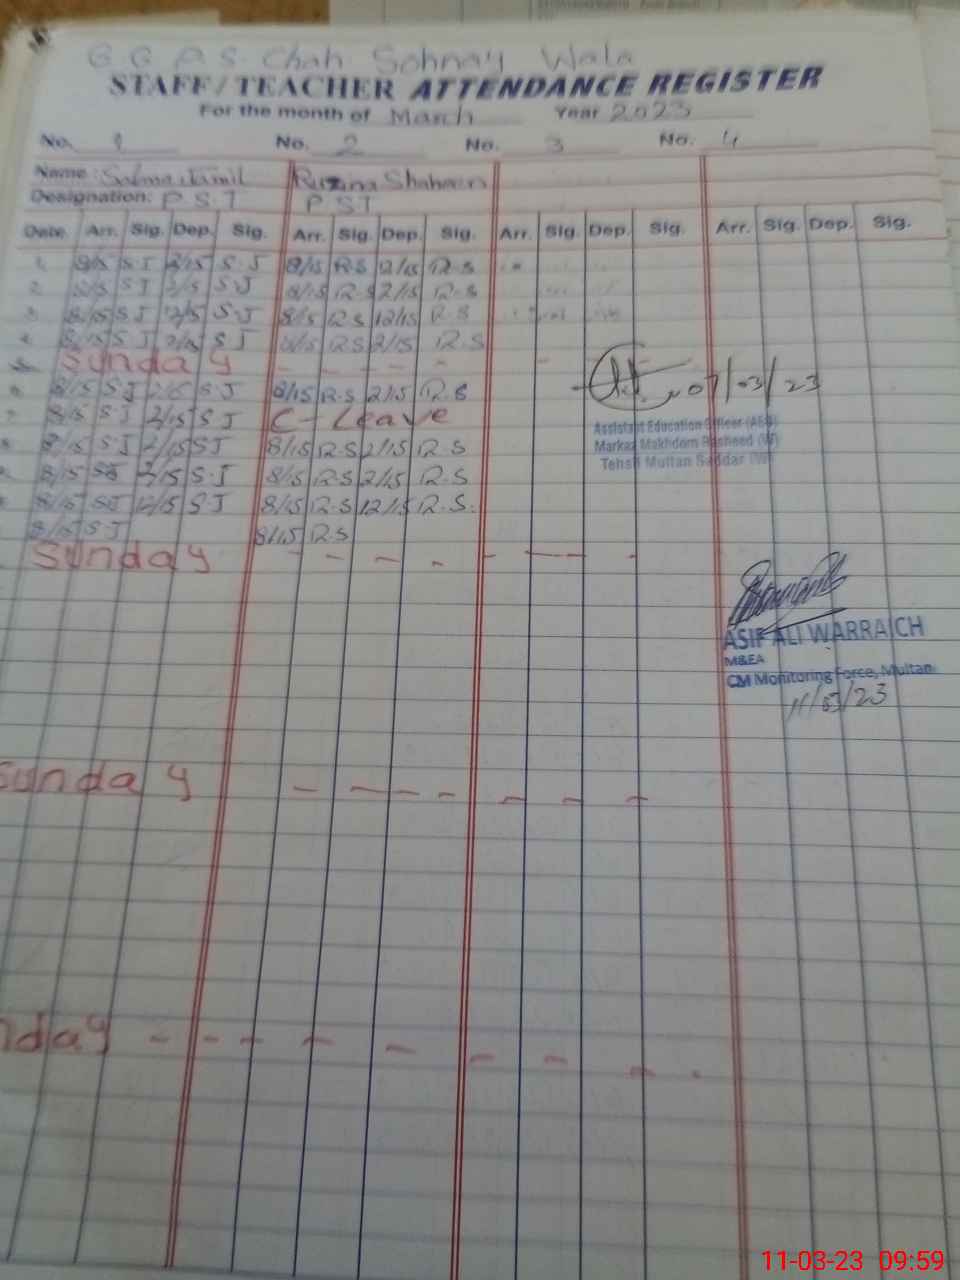 G. G. P. S. Chah Sohnay Wala
STAFF/TEACHER ATTENDANCE REGISTER
For the month of March Year 2023
No. 1 No. 2 No. 3 No. 4
Name: Salma Jamil Ruzina Shaheen
Designation: P.S.T P ST
Date. Arr. Sig. Dep. Sig. Arr. Sig. Dep. Sig. Arr. Sig. Dep. Sig. Arr. Sig. Dep. Sig.
1 8/15 S.J 2/15 S.J 8/15 R.S 12/15 R.S
2 8/15 S J 2/15 S.J 8/15 R.S 2/15 R.S
3 8/15 S J 12/15 S.J 8/15 R.S 12/15 R.S
4 8/15 S J 2/15 S J 8/15 R.S 2/15 R.S
Sunday - - - - - -
6 8/15 S J 2/15 S.J 8/15 R.S 2/15 R.S
7 8/15 S.J 2/15 S J C-Leave
07/03/23
Assistant Education Officer (AEO)
Markaz Makhdom Rasheed (W)
Tehsil Multan Saddar (W)
8 8/15 S.J 2/15 S J 8/15 R.S 2/15 R.S
8/15 SJ 2/15 S.J 8/15 R.S 2/15 R.S
8/15 SJ 12/15 S.J 8/15 R.S 12/15 R.S.
8/15 S.J 8/15 R.S
Sunday - - - - - - -
ASIF ALI WARRAICH
M&EA
CM Monitoring Force, Multan
11/03/23
Sunday - - - - - - -
nday - - - - - - - - -
11-03-23 09:59